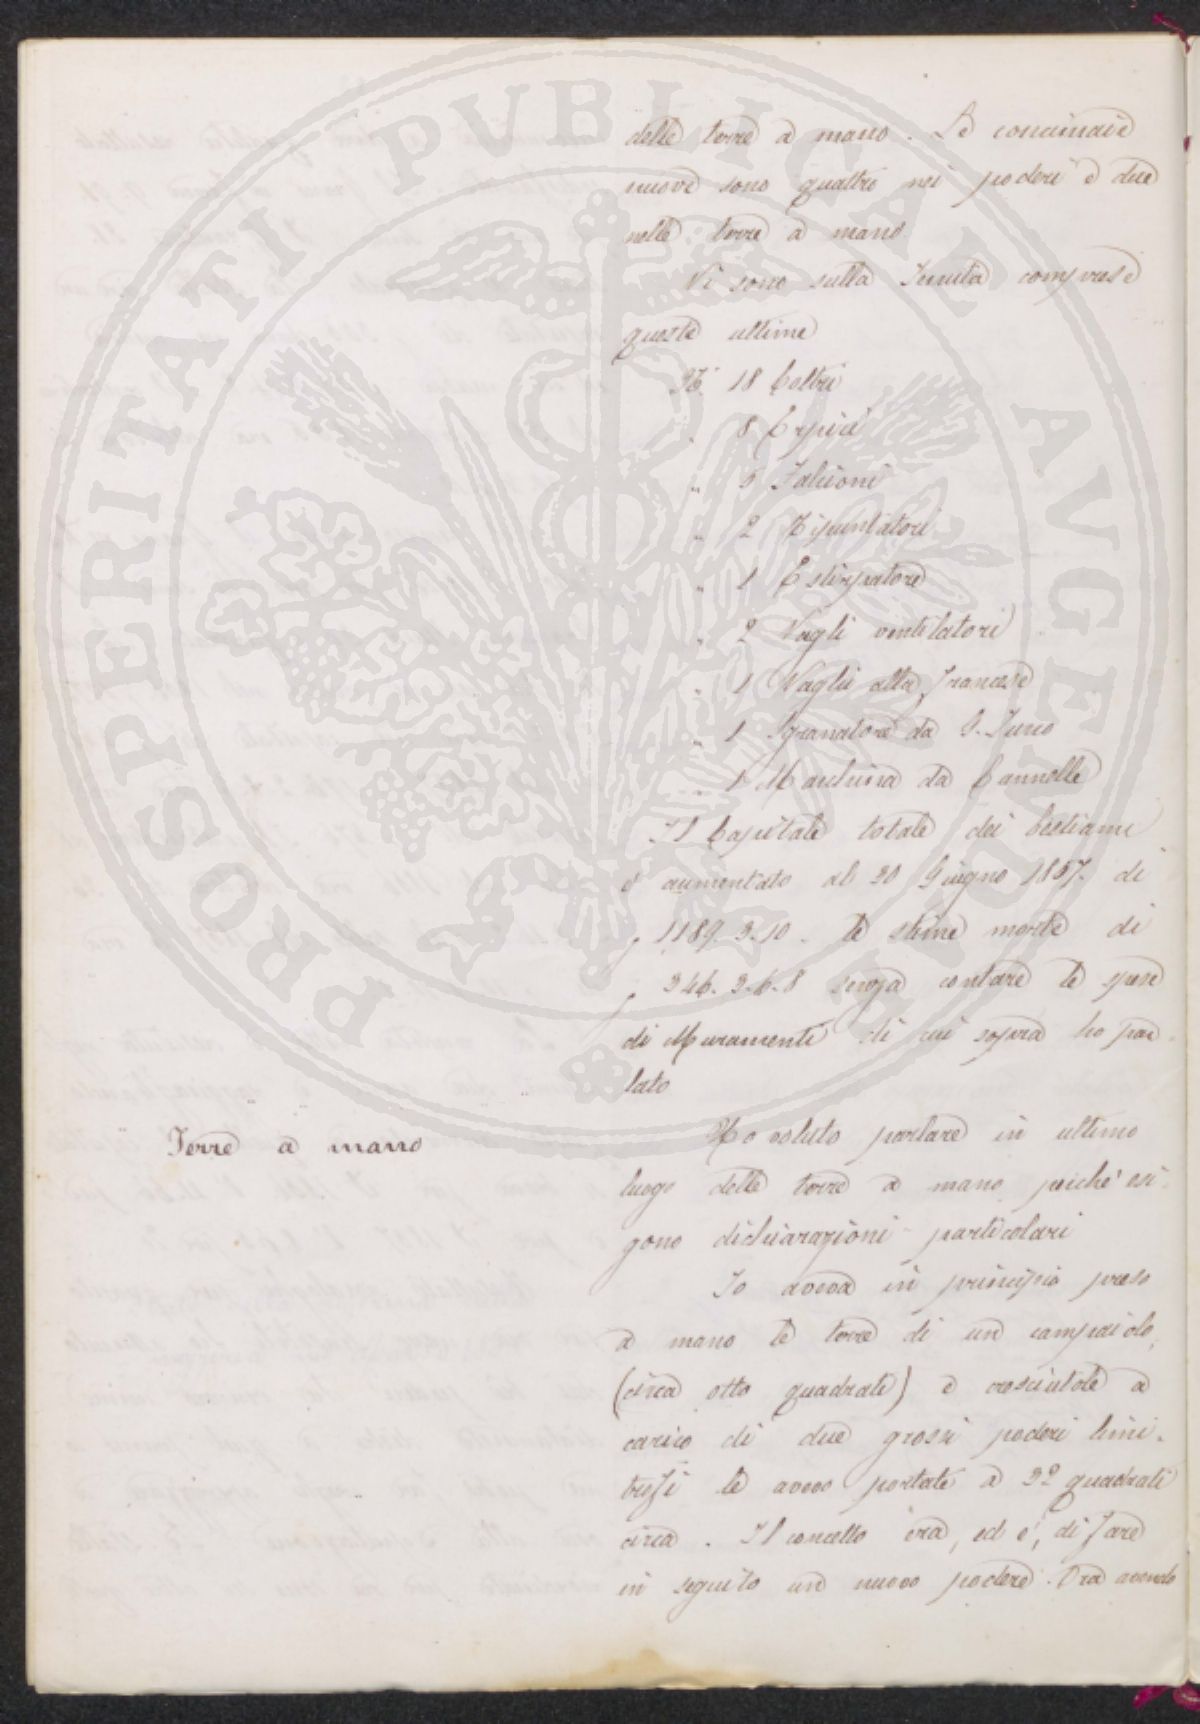 delle terre a mano. Le concimaie
nuove sono quattro nei poderi e due
nelle terre a mano
Vi sono sulla Tenuta comprese
queste ultime
N.° 18 Coltri
" 8 Erpici
" Falcioni
" 2 Ripuntatori
" 1 Estirpatore
" 2 Vagli ventilatori
" 1 Vaglio alla francese
" 1 Sgranatore da G. Turco
" 1 Macchina da Cannelle
Il Capitale totale dei bestiami
è aumentato al 30 Giugno 1867. di
£ 1189. 3.10. le stime morte di
£ 346. 3.6.8 senza contare le spese
di Muramenti di cui sopra ho par-
lato
Terre a mano
Ho voluto parlare in ultimo
luogo delle terre a mano poiché esi-
gono dichiarazioni particolari
Io aveva in principio preso
a mano le terre di un campaiolo,
(circa otto quadrati) e cresciutole a
carico di due grossi poderi limi-
trofi le avevo portate a quadrati
circa. Il concetto era, ed e', di fare
in seguito un nuovo podere. Ora avendo
PROSPERITATI PUBLICAE AUGENDAE